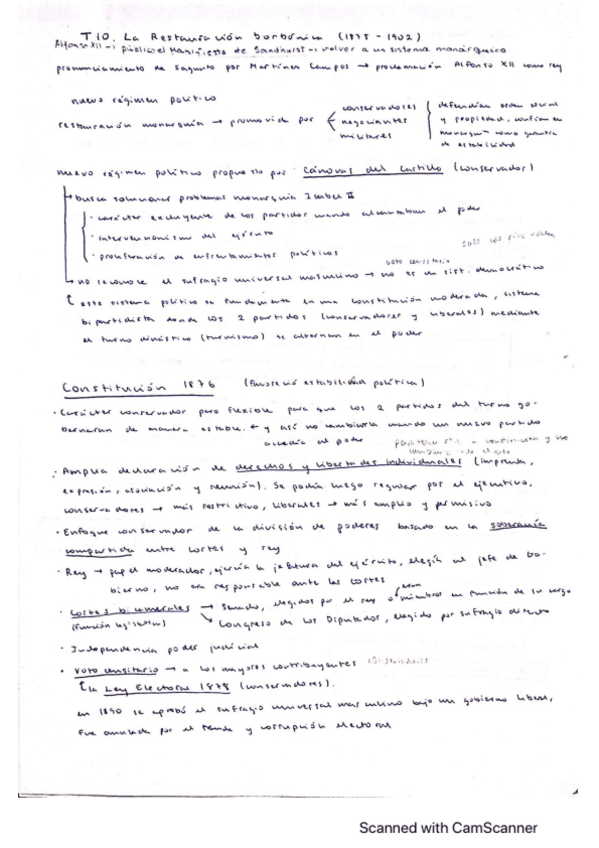 T10. La Restauración borbónica (1875 - 1902)
Alfonso XII → publicó el Manifiesto de Sandhurst → volver a un sistema monárquico
pronunciamiento de Sagunto por Martínez Campos → proclamación Alfonso XII como rey
nuevo régimen político
restauración monarquía → promovida por
conservadores
negociantes
militares
defendían orden social
y propiedad, confían en
monarquía como garantía
de estabilidad
nuevo régimen político propuesto por Cánovas del Castillo (conservador)
busca solucionar problemas monarquía Isabel II
· carácter excluyente de los partidos cuando alcanzaban el poder
· intervencionismo del ejército
· proliferación de enfrentamientos políticos
voto censitario
no reconoce el sufragio universal masculino → no es un sist. democrático
este sistema político se fundamenta en una constitución moderada, sistema
bipartidista donde los 2 partidos (conservadores y liberales) mediante
el turno dinástico (turnismo) se alternan en el poder
Constitución 1876 (favoreció estabilidad política)
· Carácter conservador pero flexible para que los 2 partidos del turno go-
bernaran de manera estable. y así no cambiarla cuando un nuevo partido
accedía al poder
· Amplia declaración de derechos y libertades individuales (imprenta,
expresión, asociación y reunión). Se podía luego regular por el ejecutivo,
conservadores → más restrictivo, liberales → más amplio y permisivo
· Enfoque conservador de la división de poderes basado en la soberanía
compartida entre Cortes y rey
· Rey → papel moderador, ejercía la jefatura del ejército, elegía al jefe de go-
bierno, no era responsable ante las cortes
· Cortes bicamerales → Senado, elegidos por el rey o eran miembros en función de su cargo
(función legislativa) → Congreso de los Diputados, elegido por sufragio directo
· Independencia poder judicial
· Voto censitario → a los mayores contribuyentes
la Ley Electoral 1878 (conservadores).
en 1890 se aprobó el sufragio universal masculino bajo un gobierno liberal,
fue anulada por el fraude y corrupción electoral
Scanned with CamScanner